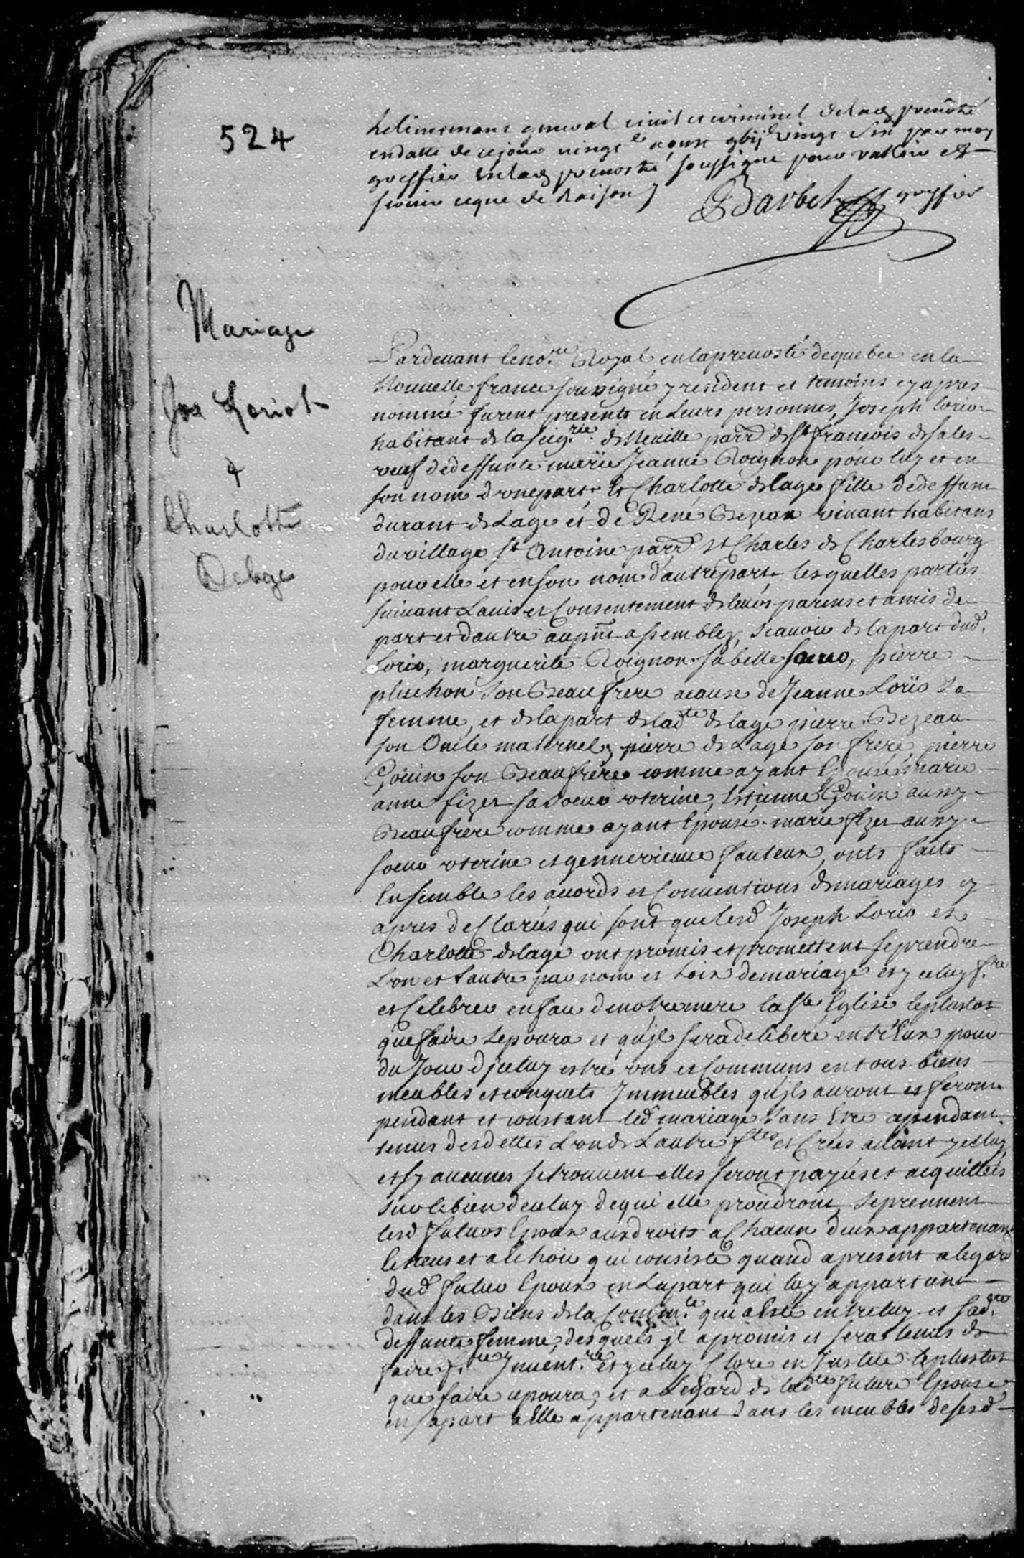 524
Lelieutenant general civil et criminel delad prevosté
en datte de ce jour vingt aoust gbij vingt six par moy
greffier en lad prevosté soussigné pour valloir et
servir ce que de raison
Barbel greffier
Mariage
Jos Loriot
&
Charlotte
Delage
Pardevant leno.re Royal en la prevosté de quebec en la
Nouvelle france soussigné y resident et temoins cy apres
nommé furent presents en leurs personnes, Joseph Lorio
habitant de la seig.rie de Neuille parr.e de st francois de sales
veuf de deffunte marie Jeanne Roignon pour luy et en
son nom d'une part, Et Charlotte delage fille de deffunt
durant de Lage et de Rene Bezeau vivant habitans
du village st Antoine parr.e st Charles de Charlesbourg
pour elle et en son nom d'autre part, lesquelles parties
suivant Lavis et Consentement de leurs parens et amis de
part et dautre au pnt assemblez, scavoir de la part dud.
Lorio, marguerite Roignon sa belle soeur, pierre
pluchon son Beaufrere a cause de Jeanne Lorio sa
femme, et de la part de lad.te delage pierre Bezeau
son Oncle maternel, pierre de Lage son frere, pierre
Goüin son Beaufrere comme ayant Epousé marie
anne fizet sa soeur uterine, Estienne Goüin aussy
Beaufrere comme ayant Epousé marie fizet aussy
soeur uterine et gennevieve fauteux, ont faits
Ensemble les acords et Conventions de mariages cy
apres declarés qui sont que lesd. Joseph Lorio et
Charlotte delage ont promis et promettent se prendre
L'un et Lautre par nom et loix de mariage et y celuy f.re
et Celebrer en face de notre mere la ste Eglise le plustost
que faire se poura et qu'il sera deliberé entr'Eux pour
du Jour d'jceluy estre uns et Communs en tous biens
meubles et conquets Immeubles qu'ils auront et feront
pendant et constant led. mariage sans Estre
tenus des dettes L'un de Lautre f.tes et Crées avant yceluy,
et sy aucunes se trouvent elles seront payées et acquittées
sur le bien de celuy de qui elle proudront, se prennent
lesd. futurs Epoux aux droits a Chacun d'eux appartenant
qui consiste quand a present a legard
dud. futur Epoux en La part qui luy appartient
dans les Biens de la Comm.té qui a esté entre luy et sad.
deffunte femme, desquels jl a promis et sera tenus de
faire f.re Invent.re et yceluy Clore en Justice le plustost
que faire se poura, et a Legard de lad.te future Epouse
en sa part a Elle appartenant dans les meubles de sesd.